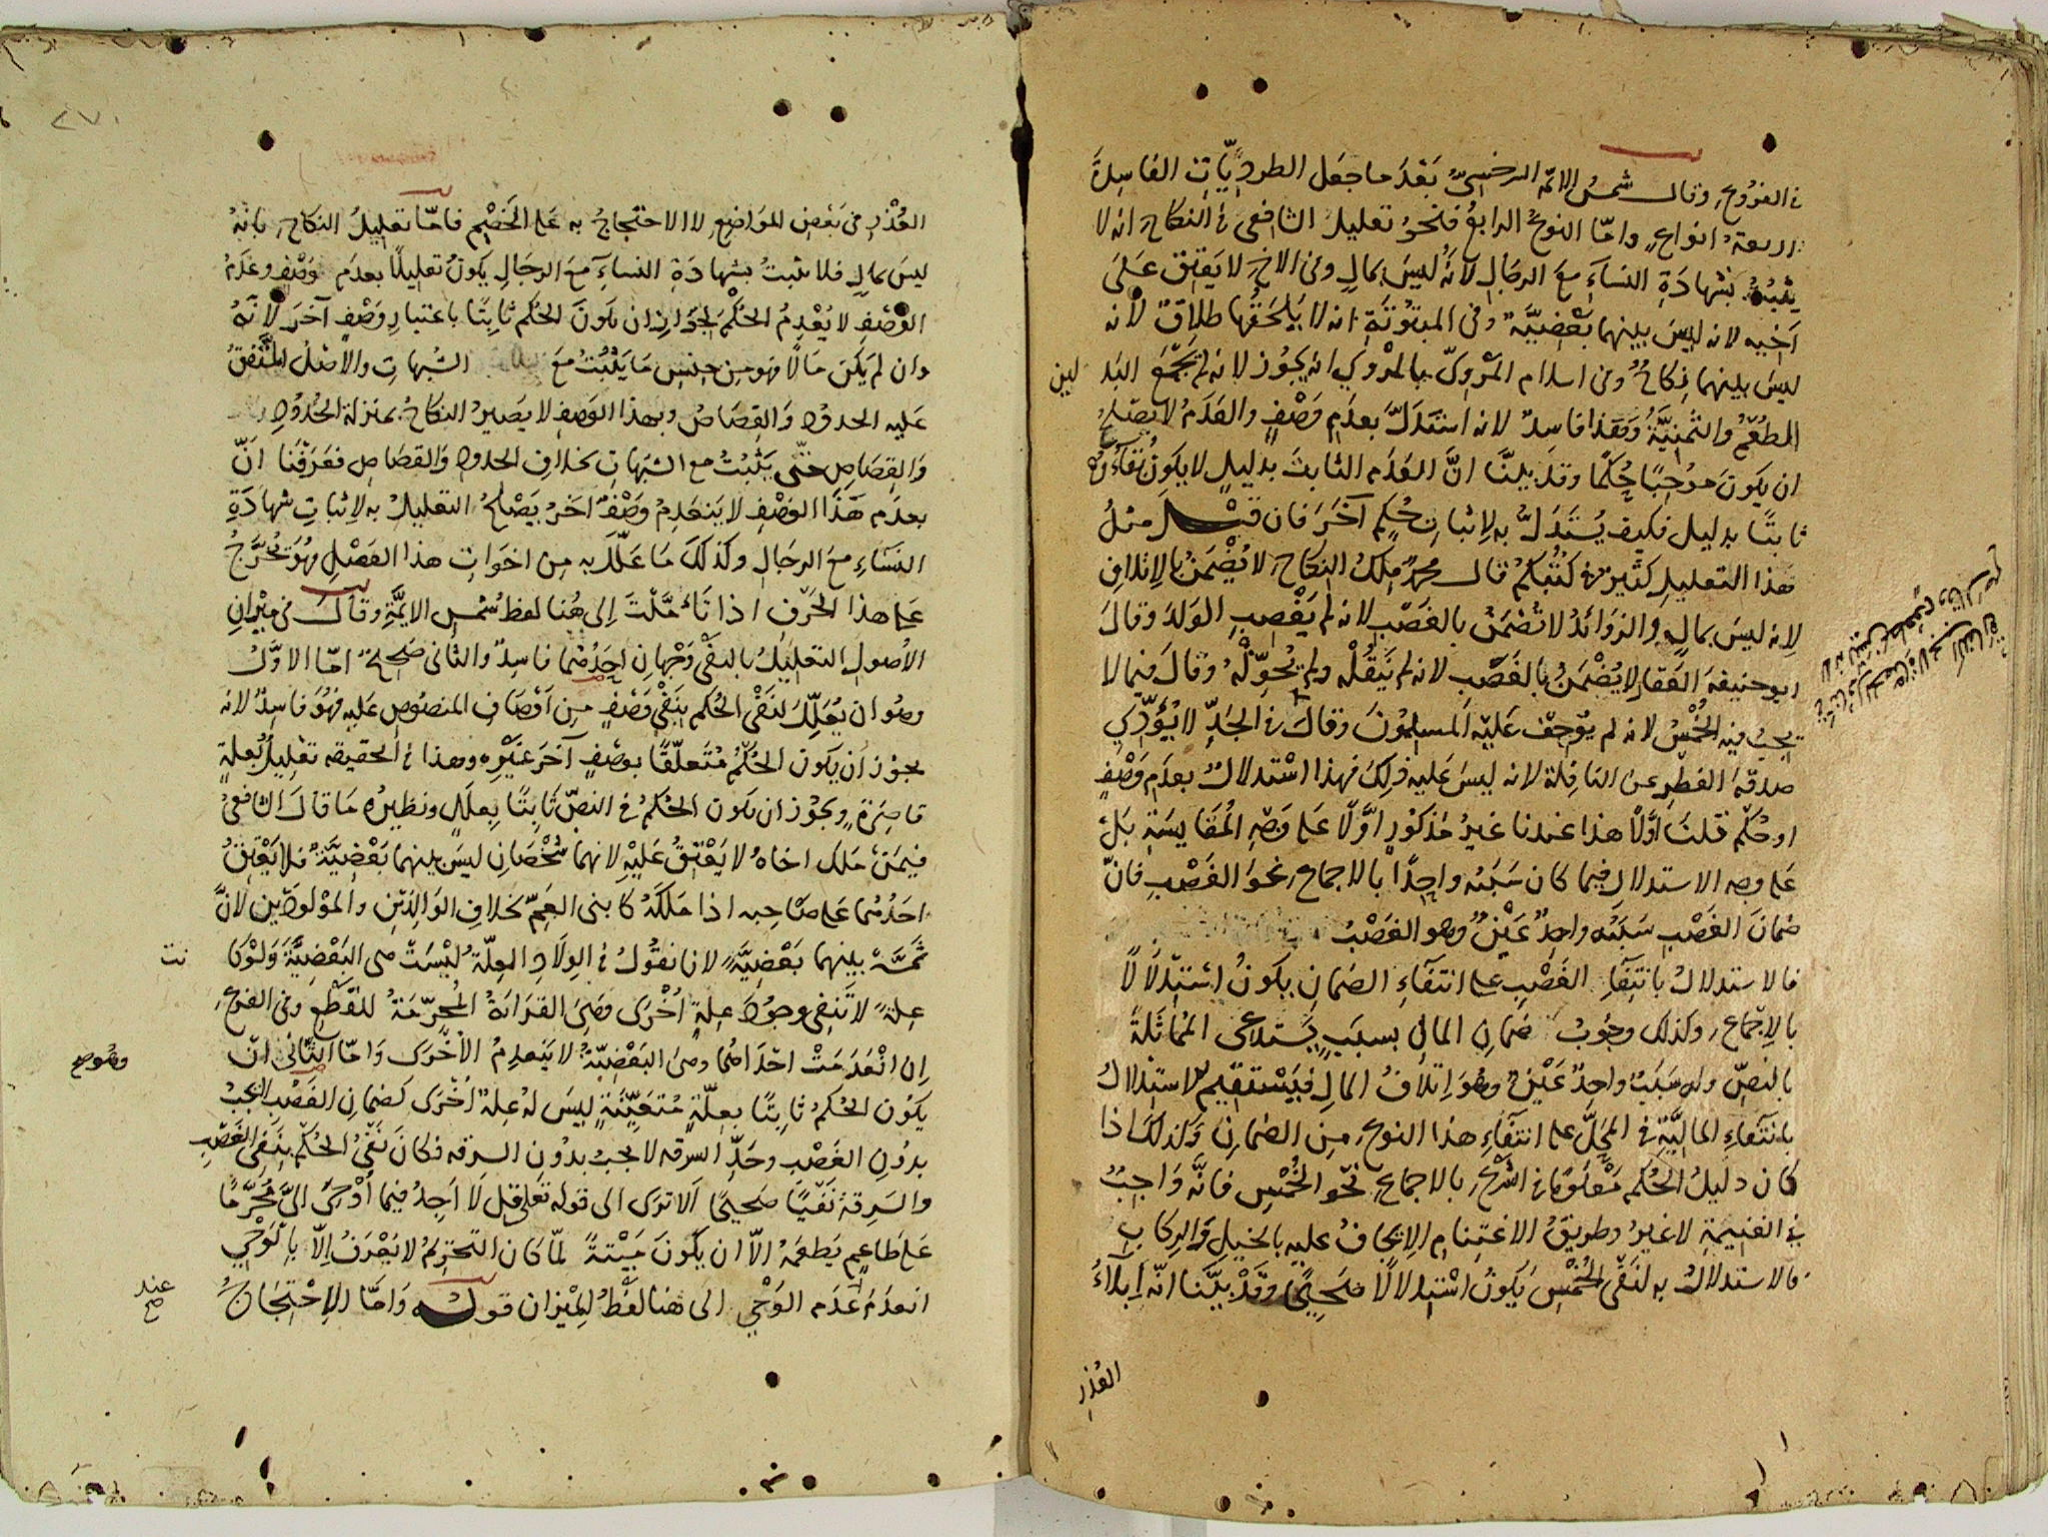 في الفروع وقال شمس الائمة السرخسي بعد ما جعل الطرديات الفاسدة
اربعة انواع واما النوع الرابع فنحو تعليل الشافعي في النكاح انه لا
يثبت بشهادة النساء مع الرجال لانه ليس بمال وفي الاخ لا يعتق على
اخيه لانه ليس بينهما بعضية وفي المبتوتة انه لا يلحقها طلاق لانه
ليس بينهما نكاح وفي اسلام المروي بالمروي انه يجوز لانه لم يجمع البدلين
الطعم والثمنية وهذا فاسد لانه استدل بعدم وصف والعدم لا يصلح
ان يكون موجبا حكما وقد بينا ان العدم الثابت بدليل لا يكون بقاءه
ثابتا بدليل فكيف يستدل به لاثبات حكم آخر فان قيل مثل
هذا التعليل كثير في كتبكم قال محمد ملك النكاح لا يضمن بالاتلاف
لانه ليس بمال والزوائد لا تضمن بالغصب لانه لم يغصب الولد وقال
ابو حنيفة العقار لا يضمن بالغصب لانه لم ينقله ولم يحوله وقال فيما لا
يجب فيه الخمس لانه لم يوجف عليه المسلمون وقال في الجد لا يؤدي
صدقة الفطر عن النافلة لانه ليس عليه ذلك فهذا استدلال بعدم وصف
او حكم قلنا اولا هذا عندنا غير مذكور اولا على وجه المقايسة بل
على وجه الاستدلال فيما كان سببه واحدا بالاجماع نحو الغصب فان
ضمان الغصب سببه واحد عين وهو الغصب
فالاستدلال بانتفاء الغصب على انتفاء الضمان يكون استدلالا
بالاجماع وكذلك وجوب ضمان المال بسبب يستدعي المماثلة
بالنص وله سبب واحد عين وهو اتلاف المال فيستقيم الاستدلال
بانتفاء المالية في المحل على انتفاء هذا النوع من الضمان وكذلك اذا
كان دليل الحكم معلوما في الشرع بالاجماع نحو الخمس فانه واجب
في الغنيمة لا غير وطريق الاغتنام الايجاف عليه بالخيل والركاب
فالاستدلال به لنفي الخمس يكون استدلالا صحيحا وقد بينا انه ابلاء
العذر
العذر في بعض المواضع لا الاحتجاج به على الخصم فاما تعليل النكاح بانه
ليس بمال فلا يثبت بشهادة النساء مع الرجال يكون تعليلا بعدم وصف وعدم
الوصف لا يعدم الحكم لجواز ان يكون الحكم ثابتا باعتبار وصف آخر لانه
وان لم يكن مالا فهو من جنس ما يثبت مع الشبهات والاصل المتفق
عليه الحدود والقصاص وبهذا الوصف لا يصير النكاح بمنزلة الحدود
والقصاص حتى يثبت مع الشبهات بخلاف الحدود والقصاص فعرفنا ان
بعدم هذا الوصف لا ينعدم وصف اخر يصلح التعليل به لاثبات شهادة
النساء مع الرجال وكذلك ما علل به من اخوات هذا الفصل فهو مخرج
على هذا الحرف اذا تأملت الى هنا لفظ شمس الائمة وقال في ميزان
الاصول التعليل بالنفي وجهان احدهما فاسد والثاني صحيح اما الاول
وهو ان يعلل لنفي الحكم بنفي وصف من اوصاف المنصوص عليه فهو فاسد لانه
يجوز ان يكون الحكم متعلقا بوصف آخر غيره وهذا في الحقيقة تعليل بعلة
قاصرة ويجوز ان يكون الحكم في النص ثابتا بعلل ونظيره ما قال الشافعي
فيمن ملك اخاه لا يعتق عليه لانهما شخصان ليس بينهما بعضية فلا يعتق
احدهما على صاحبه اذا ملكه كابني العم بخلاف الوالدين والمولودين لان
ثمة بينهما بعضية لانا نقول في الولاد العلة ليست هي البعضية ولو كانت
علة لا تنفي وجود علة اخرى وهي القرابة المحرمة للقطع وفي الفرع
ان انعدمت احداهما وهي البعضية لا ينعدم الاخرى واما الثاني وهو صح ان
يكون الحكم ثابتا بعلة متعينة ليس له علة اخرى كضمان الغصب لا يجب
بدون الغصب وحد السرقة لا يجب بدون السرقة فكان نفي الحكم بنفي الغصب
والسرقة نفيا صحيحا الا ترى الى قوله تعالى قل لا اجد فيما اوحي الي محرما
على طاعم يطعمه الا ان يكون ميتة لما كان التحريم لا يعرف الا بالوحي
انعدم عند صح عدم الوحي الى هنا لفظ الميزان قوله واما الاحتجاج